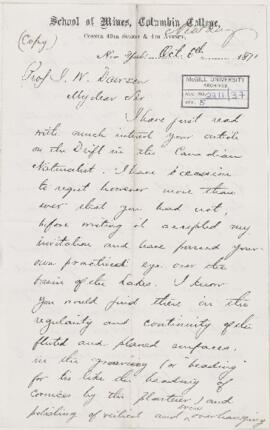 School of Mines, Columbia College,
Corner 49th Street & 4th Avenue,
(Copy)
New York Oct. 6th 1871
Prof J. W. Dawson
My dear Sir
McGILL UNIVERSITY
ARCHIVES
I have just read
with much interest your article
on the Drift in the Canadian
Naturalist. I have occasion
to regret however more than
ever that you had not,
before writing it accepted my
invitation and have passed your
own practised eye over the
basin of the Lakes. I know
you would find there in the
regularity and continuity of the
fluted and planed surfaces,
in the grooving (or "beading"
for its like the beading of
cornices by the plasterer) and
polishing of vertical and even overhanging